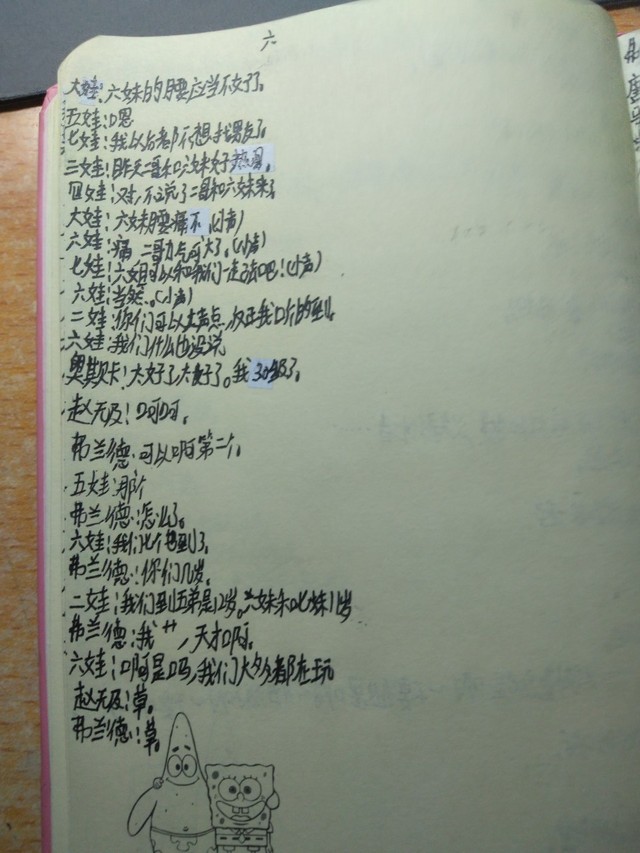 六
大娃:六妹的腰应当不好了。
五娃:嗯
七娃:我以后都不想找男友了。
三娃:昨天二哥和六妹好热闹。
四娃:对,不说了二哥和六妹来了
大娃:六妹腰痛不(小声)
六娃:痛 二哥力气可大了。(小声)
七娃:六姐可以和我们一起 吧!(小声)
六娃:当然。(小声)
二娃:你们可以大声点,反正我听的到。
六娃:我们什么也没说
奥斯卡!太好了,太好了。我30级了。
赵无及!呵呵。
弗兰德:可以啊第二个。
五娃:那个
弗兰德:怎么了。
六娃:我们七个也到了。
弗兰德!你们几岁。
二娃:我们到五弟是12岁。六妹和七妹11岁
弗兰德:我艹,天才啊。
六娃:啊是吗,我们大多都在玩
赵无及!草。
弗兰德!草。